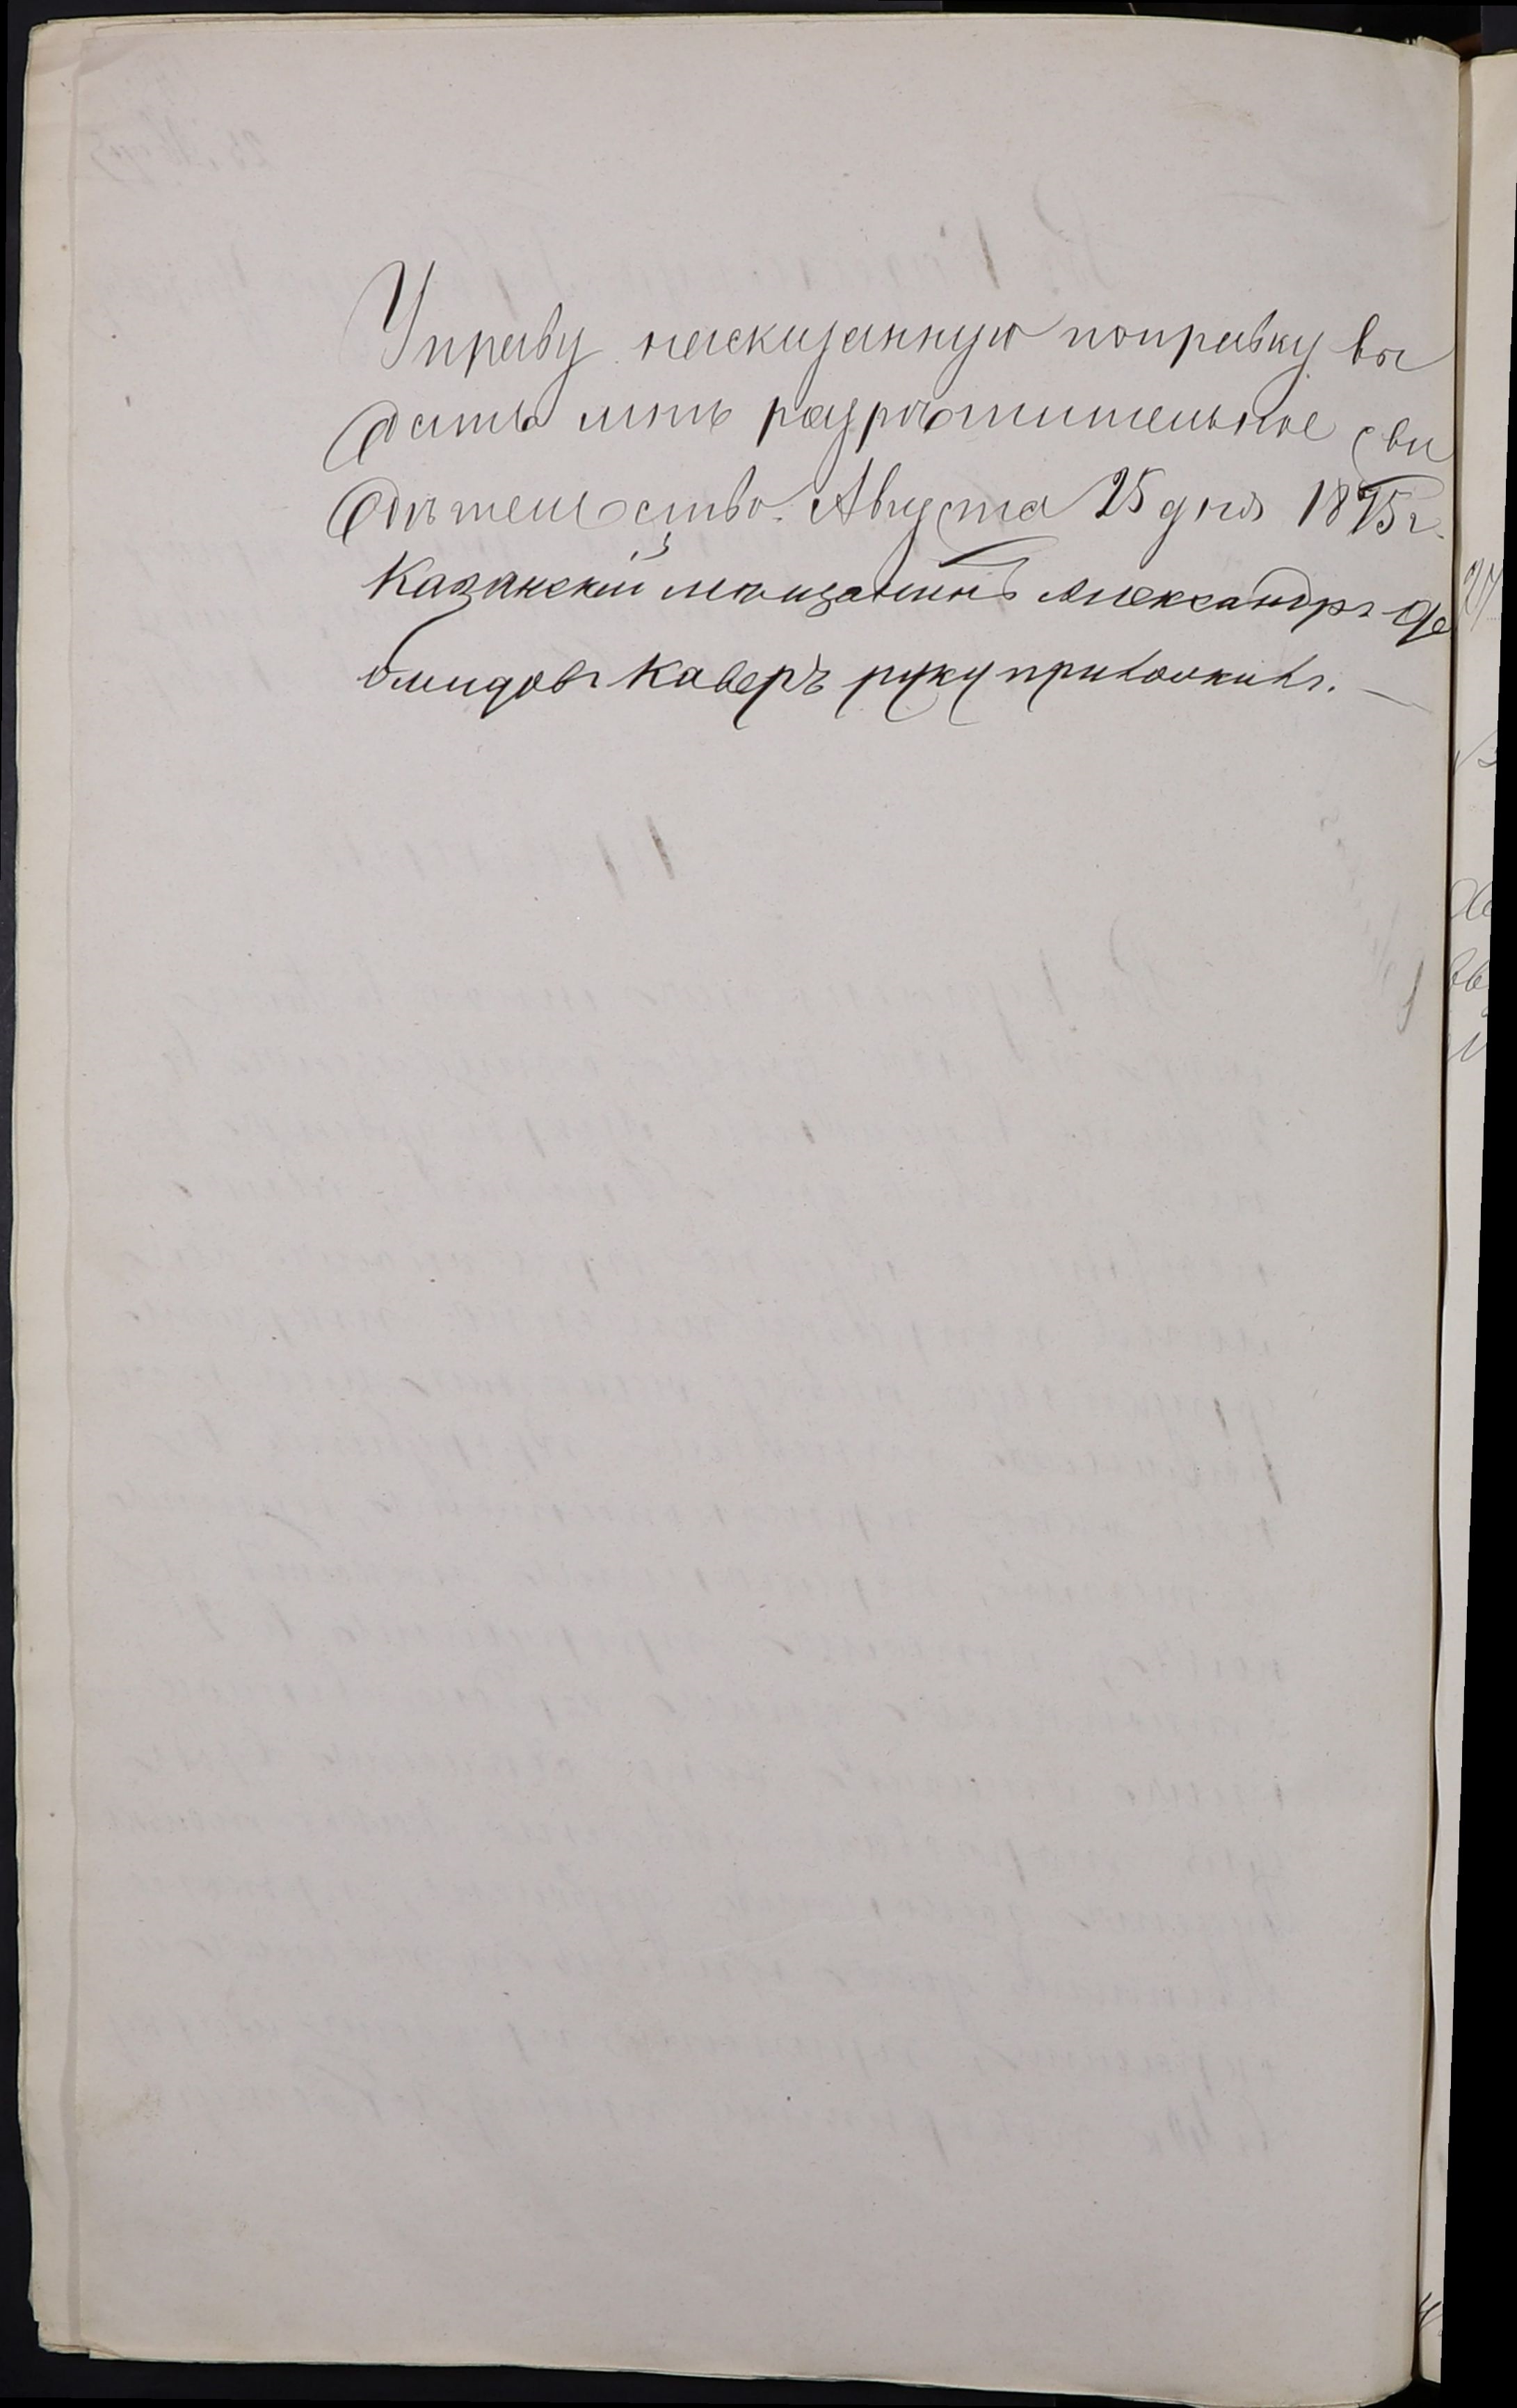 Управу насказанную поправку вы
дать мнѣ разрѣшительное сви
дѣтельство. Августа 25 дня 1875 г.
Казанскій мѣщанинъ Александръ
Каверъ руку приложилъ.